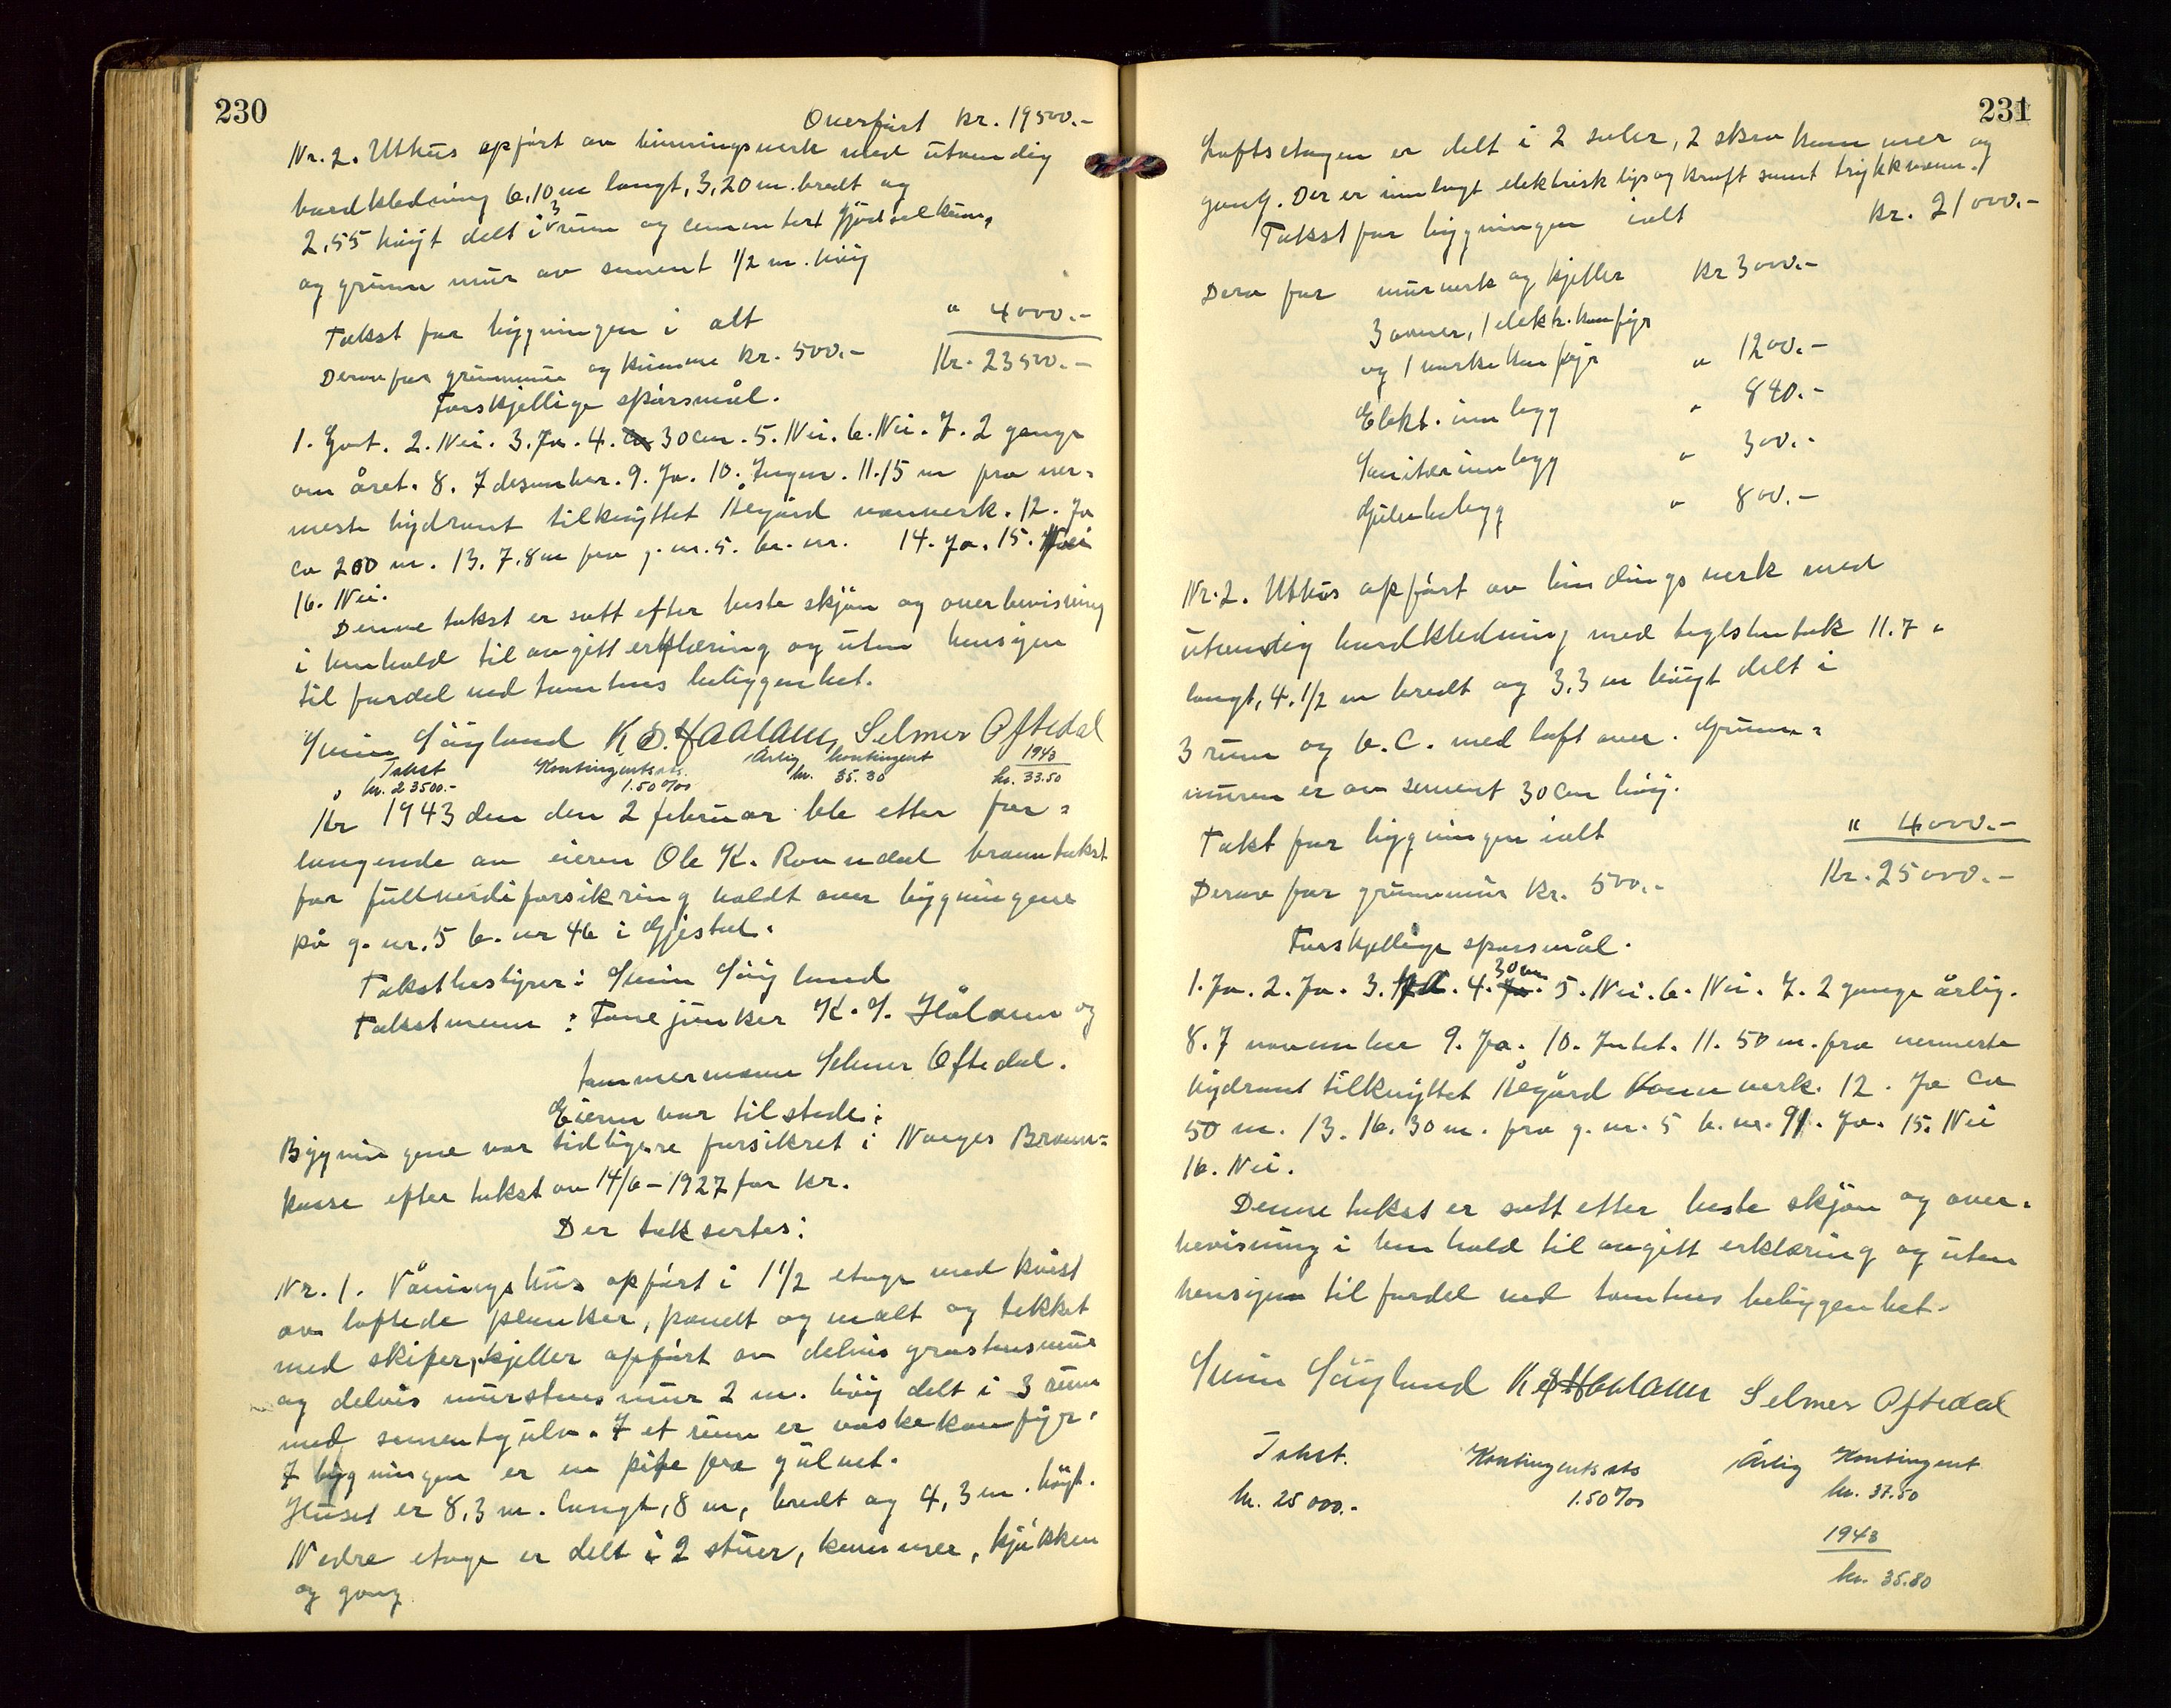 230
Overført kr. 19500.-
Nr. 2. Uthus opført av binningsverk med utvendig
bordkledning 6,10 m langt, 3,20 m. bredt og
2,55 höyt delt i 3 rum og cementert gjödselkum,
og grunn mur av sement 1/2 m. höy
Takst for bygningen i alt " 4000.-
Derav for grunnmur og kumme kr. 500.- Kr. 23500.-
Forskjellige spørsmål.
1. Godt. 2. Nei. 3. Ja. 4. 30 cm. 5. Nei. 6. Nei. 7. 2 gange
om året. 8. I desember. 9. Ja. 10. Ingen. 11. 15 m fra ner-
meste hydrant tilknyttet Ålgård vannverk. 12. Ja
ca 200 m. 13. 7.8 m fra g. nr. 5. br. nr. 14. Ja. 15. Nei
16. Nei.
Denne takst er satt efter beste skjön og overbevisning
i henhold til avgitt erklæring og uten hensyn
til fordel ved tomtens beliggenhet.
Svein Söyland K.S. Haaland, Selmer Oftedal
Takst Kontingentsats. Årlig kontingent 1943
kr. 23500.- 1.50 ‰ kr. 35.30 kr. 33.50
År 1943 den den 2 februar ble etter for-
langende av eieren Ole K. Ravndal branntakst
for fullverdiforsikring holdt over bygningene
på g. nr. 5 b. nr 46 i Gjestal.
Takstbestyrer: Svein Söyland
Takstmenn: Fanejunker K. S. Håland og
tømmermann Selmer Oftedal.
Eieren var tilstede:
Bygningene var tidligere forsikret i Norges Brann-
kasse efter takst av 14/6-1927 for kr.
Der taksertes:
Nr. 1. Våningshus opført i 1 1/2 etage med kvist
av loftede planker, panelt og malt og tekket
med skifer, kjeller opført av delvis gråstensmur
og delvis murstensmur 2 m. höy delt i 3 rum
med sementgulv. I et rum er vaskekomfyr.
I bygningen er en pipe fra gulvet.
Huset er 8,3 m. langt, 8 m, bredt og 4,3 m. höyt.
Nedre etage er delt i 2 stuer, kammer, kjökken
og gang
231
Loftsetagen er delt i 2 saler, 2 skrakammer og
gang. Der er innlagt elektrisk lys og kraft samt trykkvann.
Takst for bygningen ialt kr. 21000.-
Derav for murverk og kjeller kr 3000.-
3 ovner, 1 elektr. komfyr
og 1 vaske komfyr " 1200.-
Elekt. innlegg " 840.-
Sanitærinnlegg " 300.-
Gulvbelegg " 800.-
Nr. 2. Uthus opført av bindingsverk med
utvendig bordkledning med teglstentak 11.7 "
langt, 4. 1/2 m bredt og 3,3 m höyt delt i
3 rum og W.C. med loft over. Grunn-
muren er av sement 30 cm höy.
Takt for bygningen ialt " 4000.-
Derav for grunnmur kr. 500.- Kr. 25000.-
Forskjellige spørsmål.
1. Ja. 2. Ja. 3. Ja. 4. 30 cm 5. Nei. 6. Nei. 7. 2 gange årlig.
8. I november 9. Ja. 10. Intet. 11. 50 m. fra nermeste
hydrant tilknyttet Ålgård Vannverk. 12. Ja ca
50 m. 13. 16.30 m. fra g. nr. 5 b. nr. 91. Ja. 15. Nei
16. Nei.
Denne takst er satt etter beste skjön og over-
bevisning i henhold til avgitt erklæring og uten
hensyn til fordel ved tomtens beliggenhet.
Svein Söyland K.S. Haaland Selmer Oftedal
Takst. Kontingentsats Årlig Kontingent
kr. 25000.- 1.50 ‰ kr. 37.50
1943
kr. 35.80